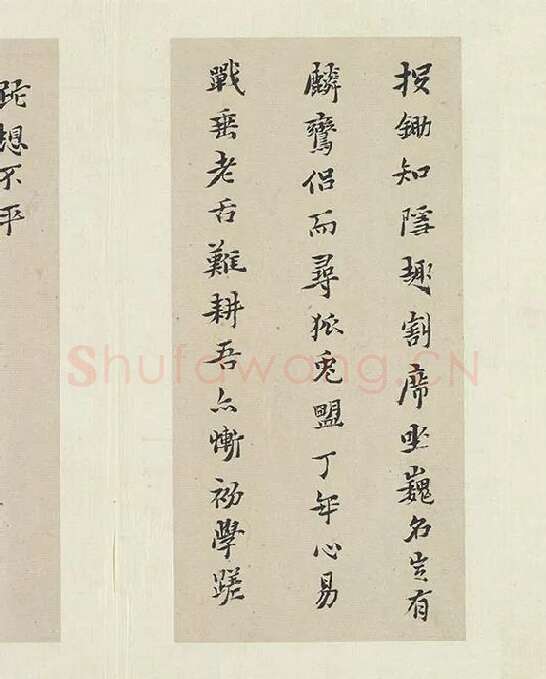 投鋤知隱趣割席坐巍名豈有
麟鸞侶而尋狐兔盟丁年心易
戰垂老舌難耕吾亦慚初學蹉
跎想不平
Shufawang.CN